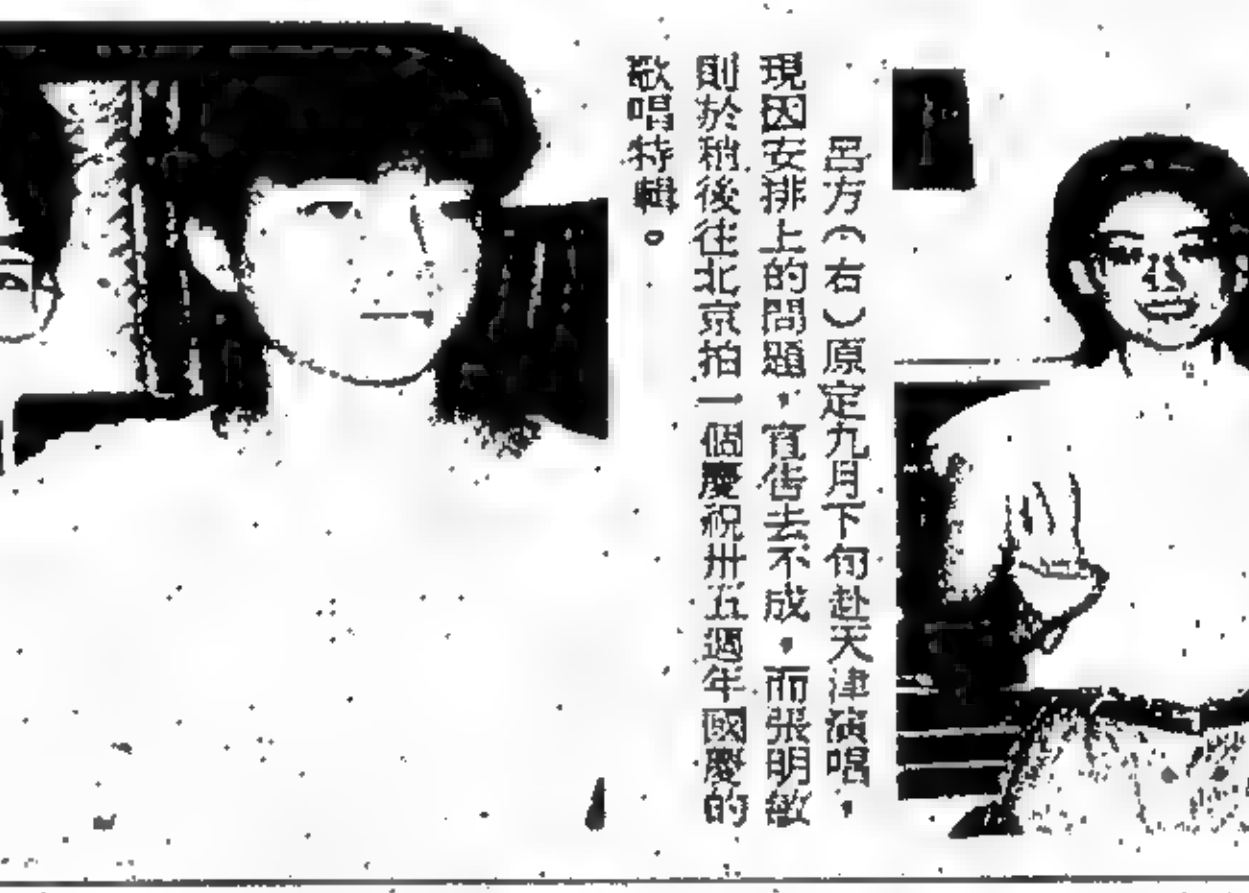 呂方（右）原定九月下旬赴天津演唱，
現因安排上的問題，宣告去不成，而張明敏
則於稍後往北京拍一個慶祝卅五週年國慶的
歌唱特輯。